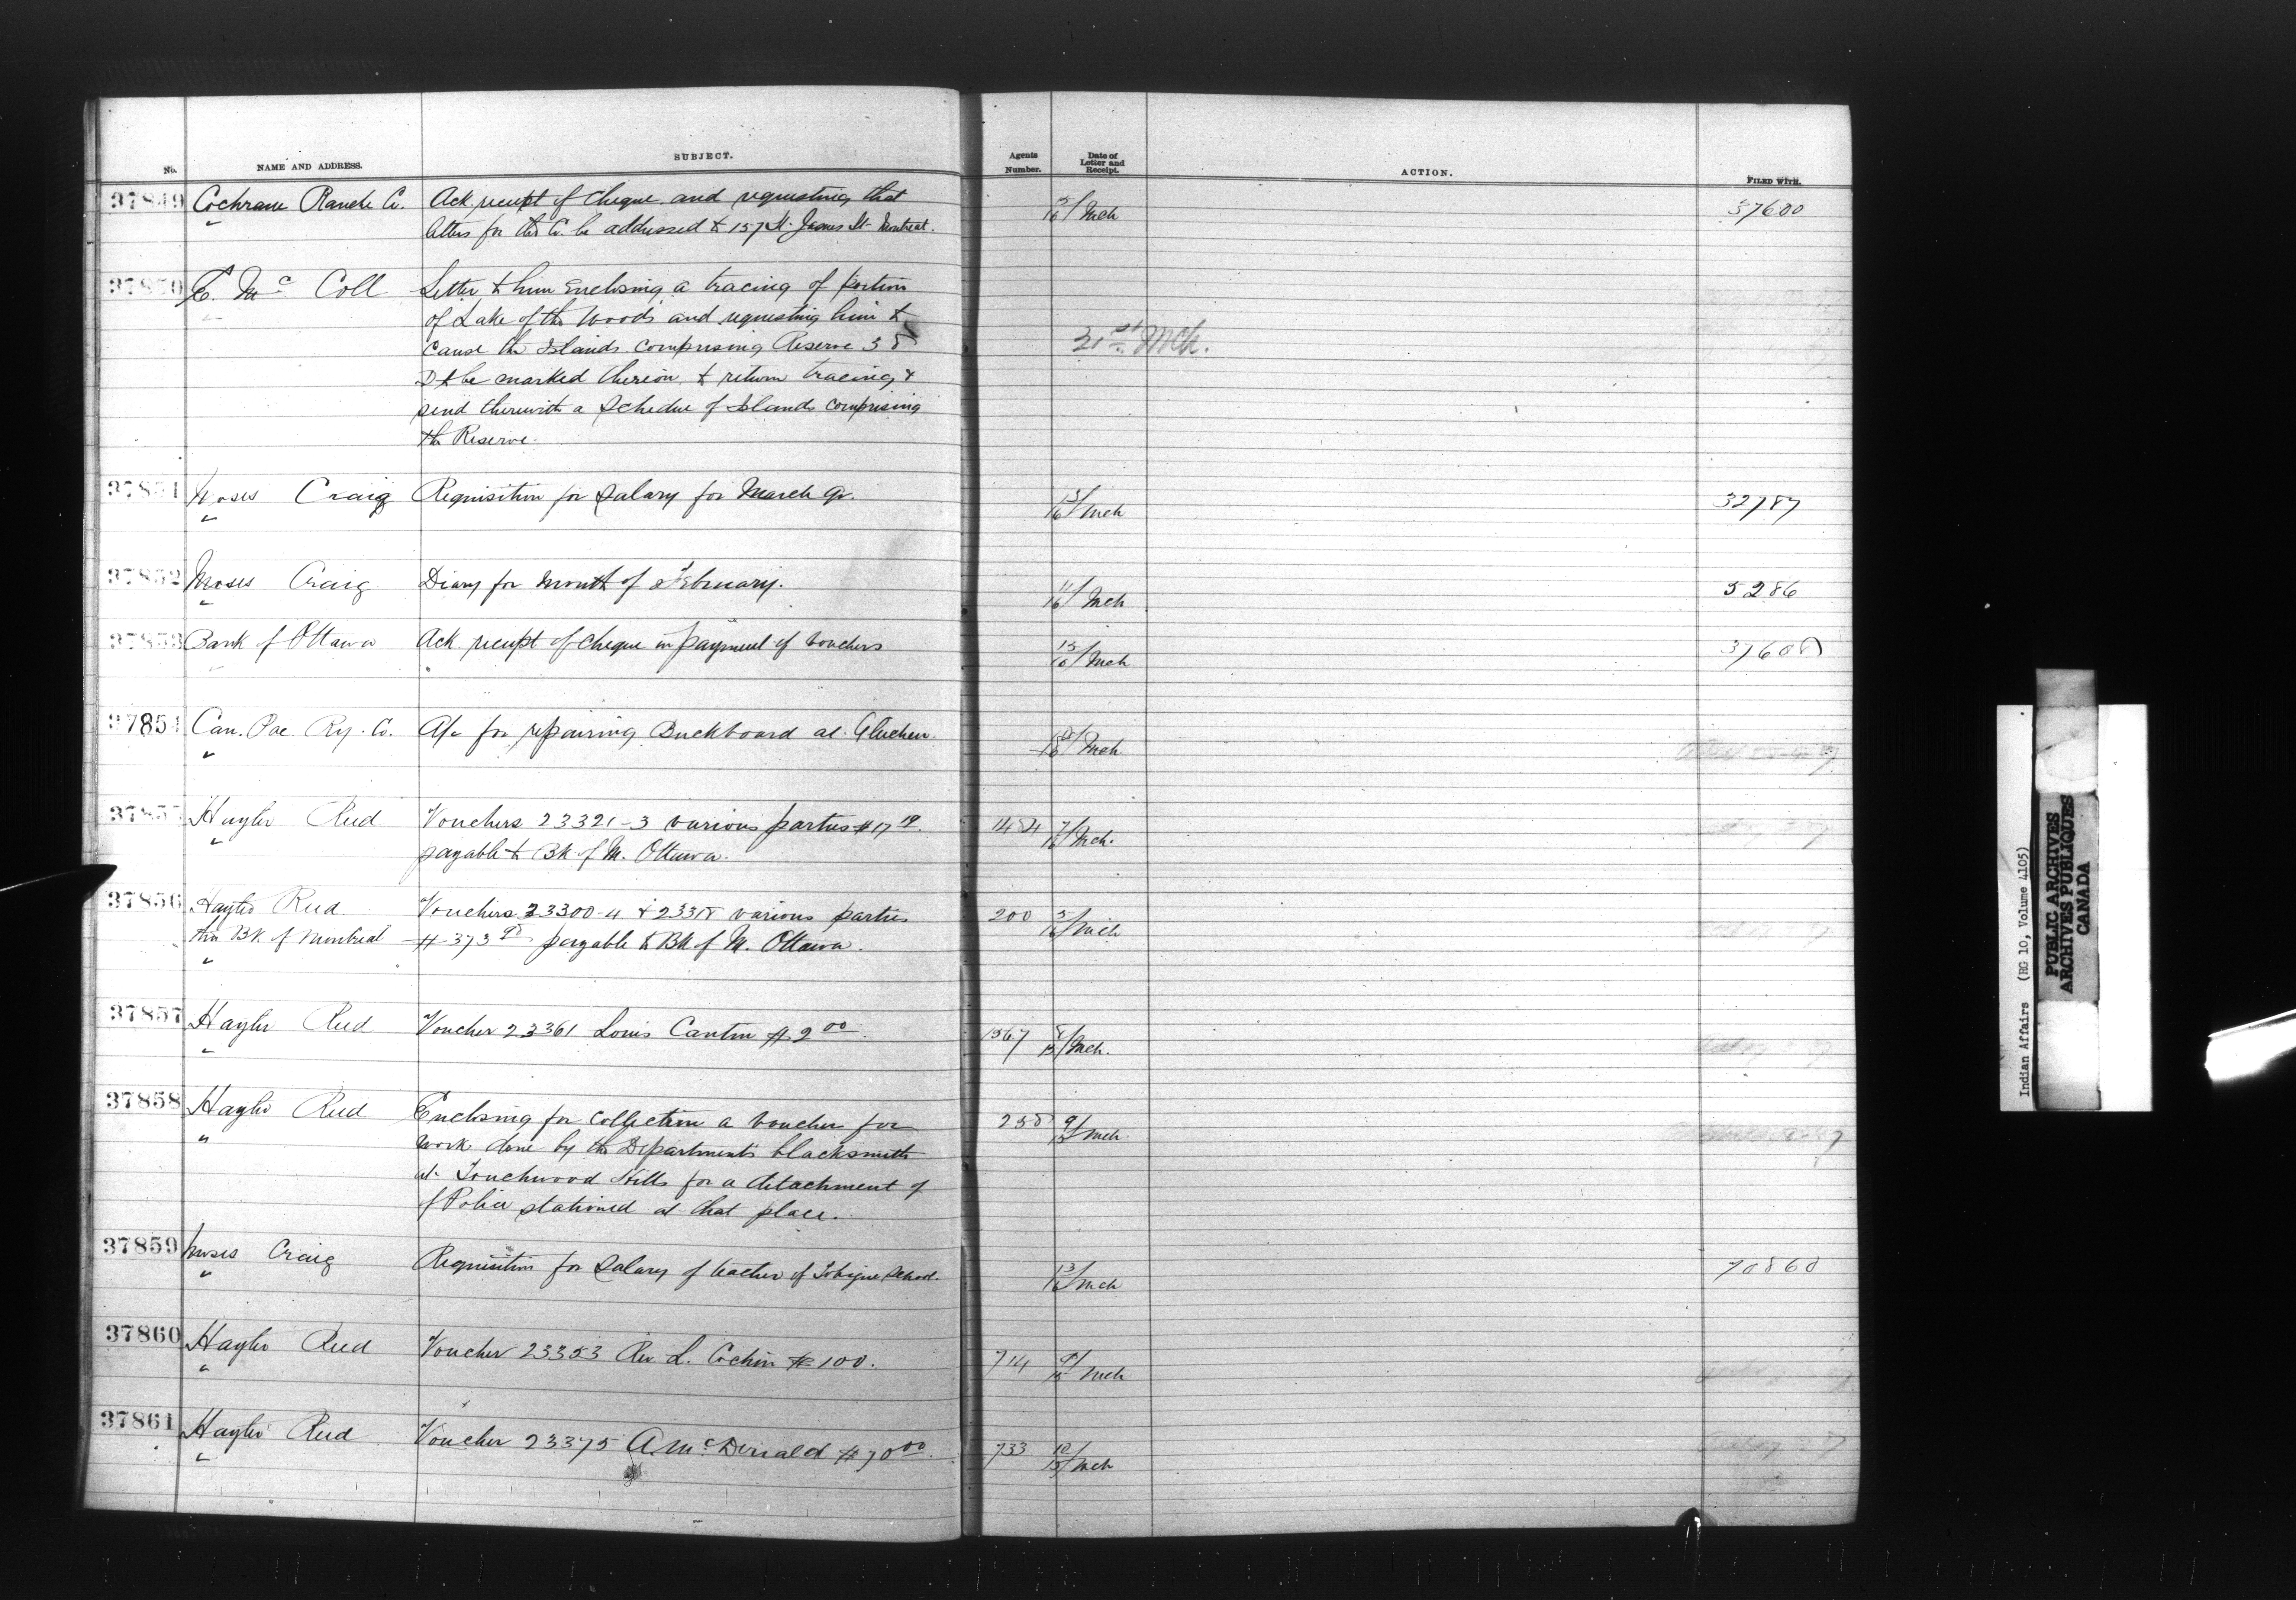 No. NAME AND ADDRESS. SUBJECT. Agents Number. Date of Letter and Receipt. ACTION. FILED WITH.
37849 Cochrane Ranche Co. Ack receipt of cheque and requesting that 5/16 Mch 37600
letters for the Co. be addressed to 157 St. James St. Montreal.
37850 E. McColl Letter to him enclosing a tracing of portion
of Lake of the Woods and requesting him to
cause the Islands comprising Reserve 38 31st Mch.
D to be marked thereon & return tracing &
send therewith a Schedue of Islands comprising
the Reserve.
37851 Moses Craig Requisition for Salary for March qr. 13/16 Mch 32787
37852 Moses Craig Diary for month of February. 11/16 Mch 5286
37853 Bank of Ottawa Ack receipt of cheque in payment of vouchers 15/16 Mch 37608
37854 Can. Pac. Ry. Co. A/c for repairing Buckboard at Gleichen. Mch
37855 Hayter Reed Vouchers 23321-3 various parties $17 19. 1484 7/16 Mch.
payable to Bk of M. Ottawa.
37856 Hayter Reed Vouchers 23300-4 & 23318 various parties 200 5/16 Mch
thro Bk of Montreal $373 payable to Bk of M. Ottawa.
37857 Hayter Reed Voucher 23361 Louis Cantin $2 00. 1567 8/15 Mch.
37858 Hayter Reed Enclosing for collection a voucher for 258 9/15 Mch.
work done by the Department's blacksmith
at Touchwood Hills for a detachment of
of Police stationed at that place.
37859 Moses Craig Requisition for Salary of teacher of Tobique School. 13/16 Mch 70860
37860 Hayter Reed Voucher 23353 Rev L. Cochin $100. 714 9/15 Mch
37861 Hayter Reed Voucher 23375 A. McDonald $70 00. 733 10/15 Mch
Indian Affairs (RG 10, Volume 4105)
PUBLIC ARCHIVES
ARCHIVES PUBLIQUES
CANADA